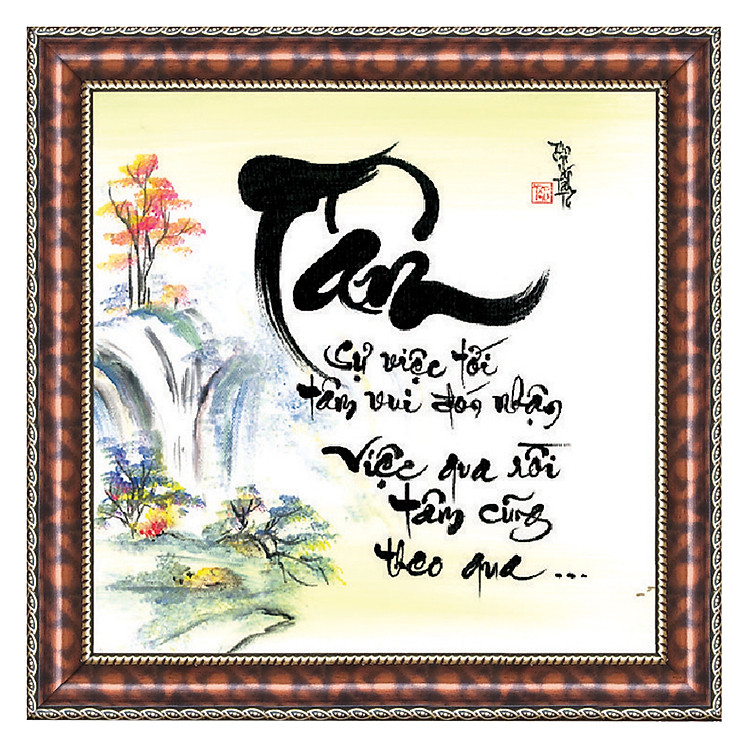 Tâm
Sự việc tới
tâm vui đón nhận
Việc qua rồi
tâm cũng
theo qua ...